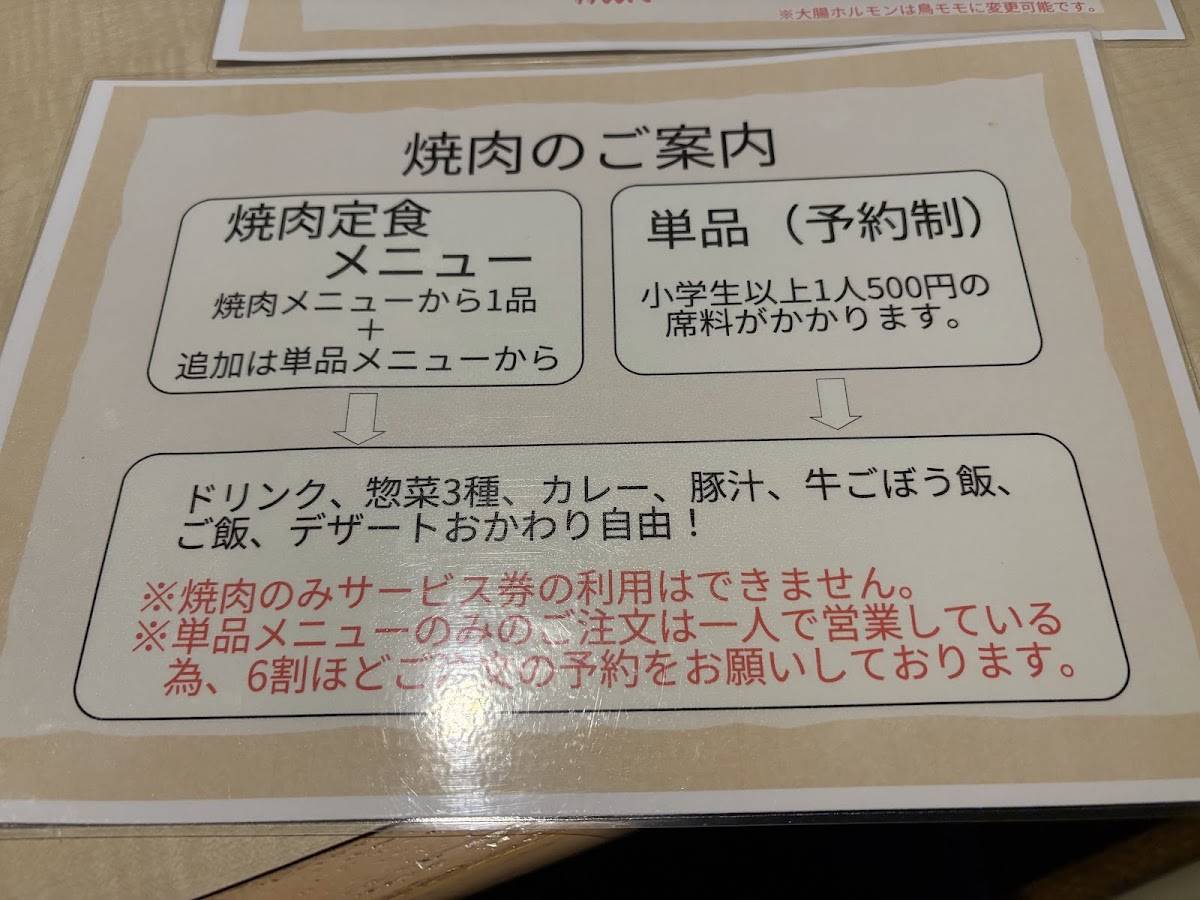 ※大腸ホルモンは鳥モモに変更可能です。
焼肉のご案内
焼肉定食
メニュー
焼肉メニューから1品
+
追加は単品メニューから
単品（予約制）
小学生以上1人500円の
席料がかかります。
ドリンク、惣菜3種、カレー、豚汁、牛ごぼう飯、
ご飯、デザートおかわり自由！
※焼肉のみサービス券の利用はできません。
※単品メニューのみのご注文は一人で営業している
為、6割ほどご注文の予約をお願いしております。